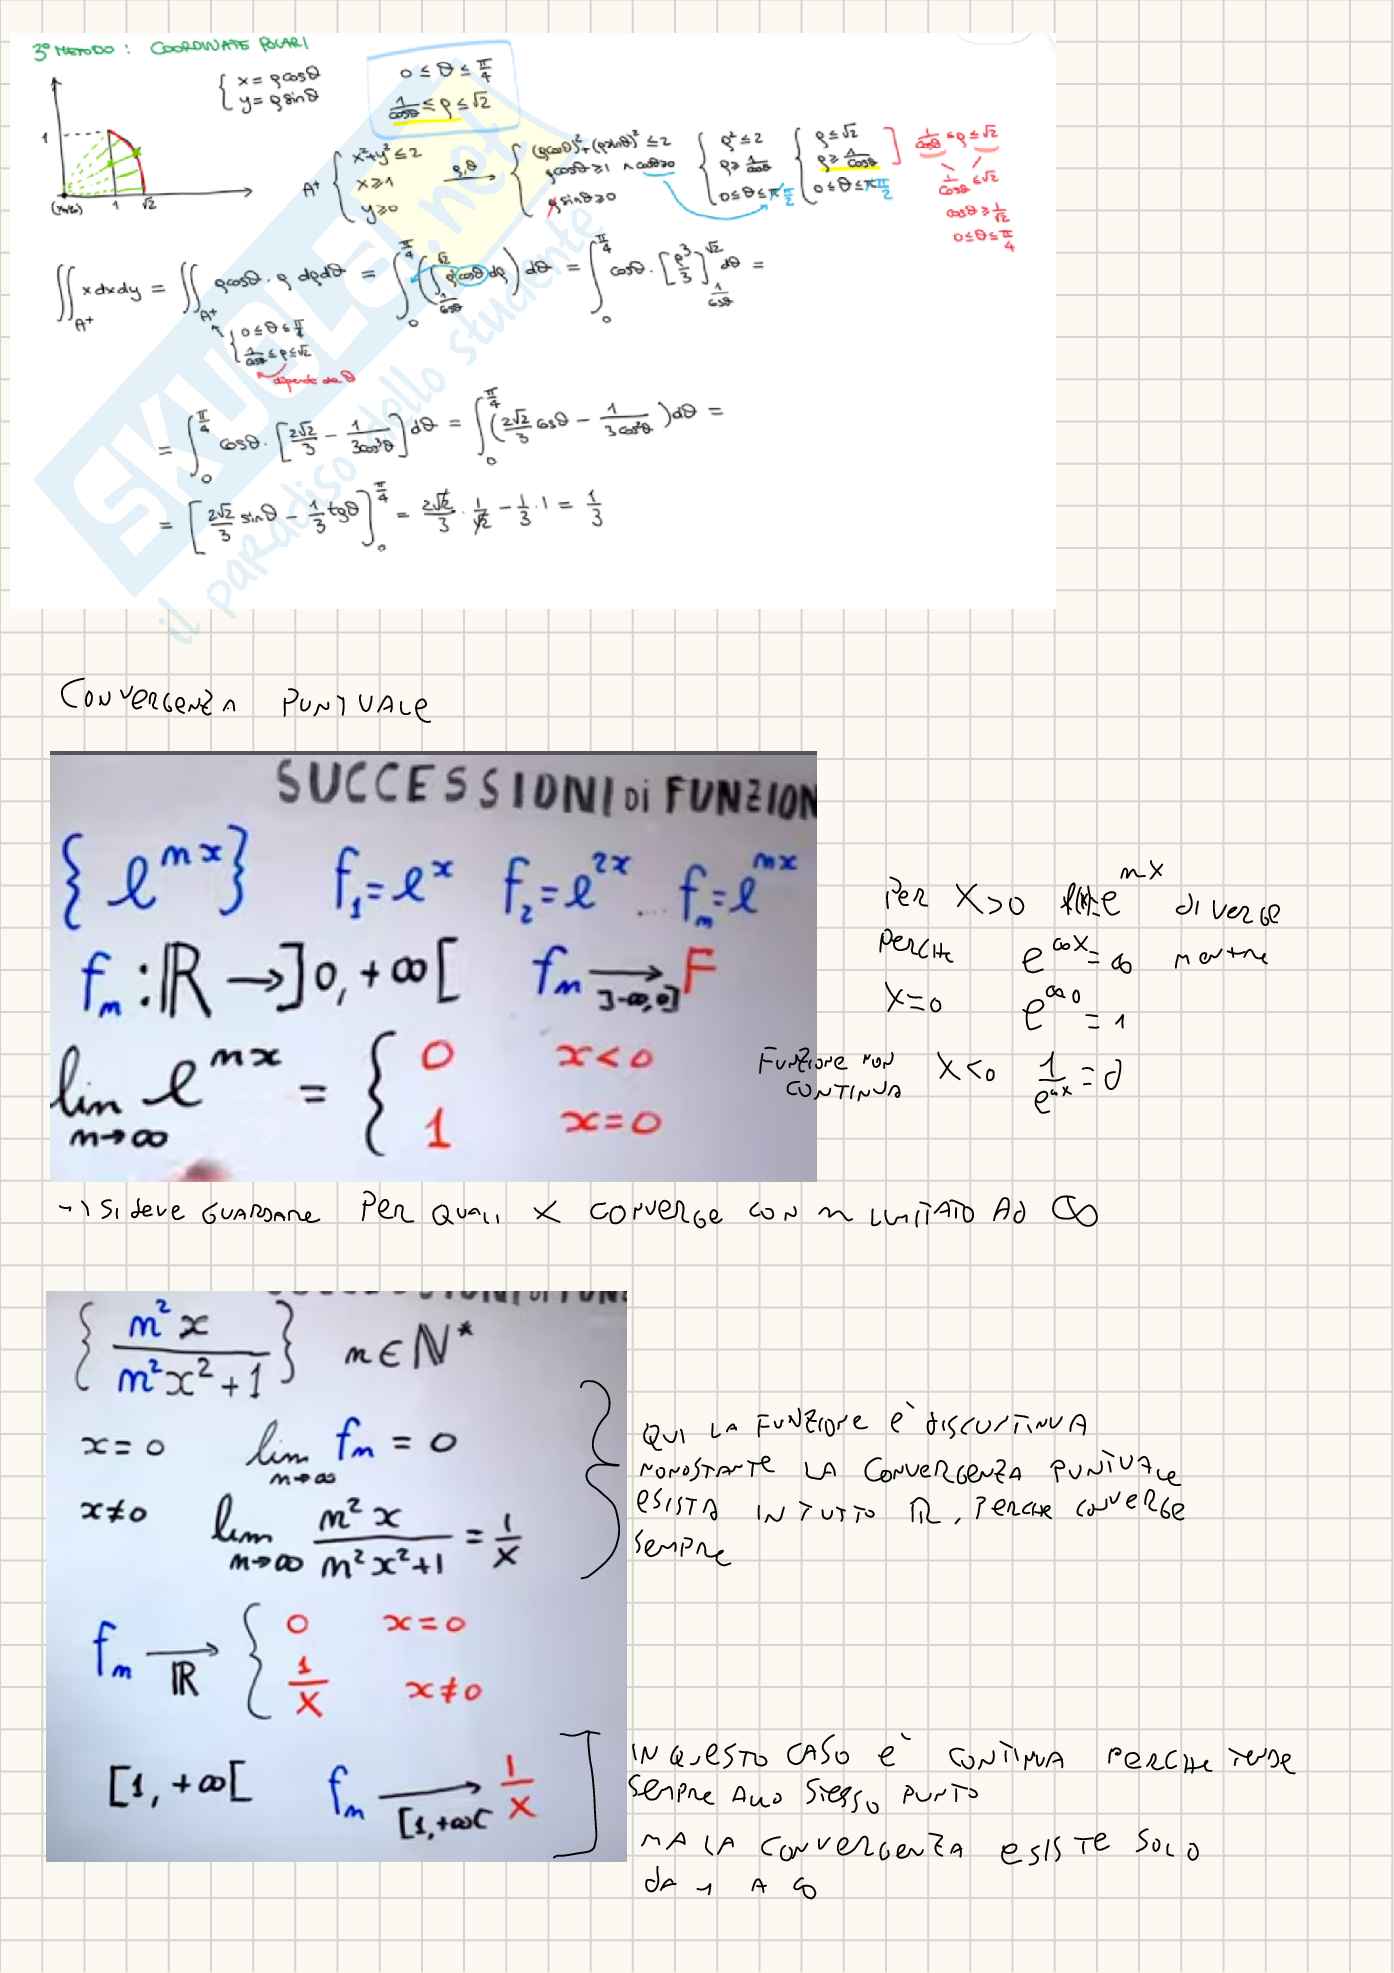 3° METODO: COORDINATE POLARI
{ x = ρcosθ
{ y = ρsinθ
0 ≤ θ ≤ π/4
1/cosθ ≤ ρ ≤ √2
1
1 √2
A⁺ { x²+y² ≤ 2
x ≥ 1
y ≥ 0
ρ,θ →
{ (ρcosθ)²+(ρsinθ)² ≤ 2
ρcosθ ≥ 1 ∧ cosθ≥0
ρsinθ ≥ 0
{ ρ² ≤ 2
ρ ≥ 1/cosθ
0 ≤ θ ≤ π π/2
{ ρ ≤ √2
ρ ≥ 1/cosθ
0 ≤ θ ≤ π π/2
1/cosθ ≤ ρ ≤ √2
1/cosθ ≤ √2
cosθ ≥ 1/√2
0 ≤ θ ≤ π/4
∬_A⁺ x dx dy = ∬_A⁺ ρcosθ · ρ dρdθ = ∫₀^{π/4} (∫_{1/cosθ}^{√2} ρ²cosθ dρ) dθ = ∫₀^{π/4} cosθ · [ρ³/3]_{1/cosθ}^{√2} dθ =
{ 0 ≤ θ ≤ π/4
1/cosθ ≤ ρ ≤ √2
dipende da θ
= ∫₀^{π/4} cosθ · [2√2/3 − 1/3cos³θ] dθ = ∫₀^{π/4} (2√2/3 cosθ − 1/3cos²θ) dθ =
= [2√2/3 sinθ − 1/3 tgθ]₀^{π/4} = 2√2/3 · 1/√2 − 1/3 · 1 = 1/3
SKUOLA.net
il paradiso dello studente
CONVERGENZA PUNTUALE
SUCCESSIONI di FUNZION
{e^{nx}} f₁ = e^x f₂ = e^{2x} ... f_n = e^{nx}
f_n : ℝ → ]0, +∞[ f_n →_{]-∞,0]} F
lim_{n→∞} e^{nx} = { 0 x<0
1 x=0
PER X>0 f(x)=e^{nx} DIVERGE
PERCHE e^{∞x} = ∞ MENTRE
X=0 e^{∞0} = 1
FUNZIONE NON CONTINUA X<0 1/e^{∞x} = 0
→ SI DEVE GUARDARE PER QUALI X CONVERGE CON n LIMITATO AD ∞
{ n²x / n²x²+1 } n ∈ ℕ*
x=0 lim_{n→∞} f_n = 0
x≠0 lim_{n→∞} n²x / n²x²+1 = 1/x
QUI LA FUNZIONE E' DISCONTINUA
NONOSTANTE LA CONVERGENZA PUNTUALE
ESISTA IN TUTTO ℝ, PERCHE CONVERGE
SEMPRE
f_n →_ℝ { 0 x=0
1/x x≠0
[1, +∞[ f_n →_{[1,+∞[} 1/x
IN QUESTO CASO E' CONTINUA PERCHE TENDE
SEMPRE ALLO STESSO PUNTO
MA LA CONVERGENZA ESISTE SOLO
DA 1 A ∞